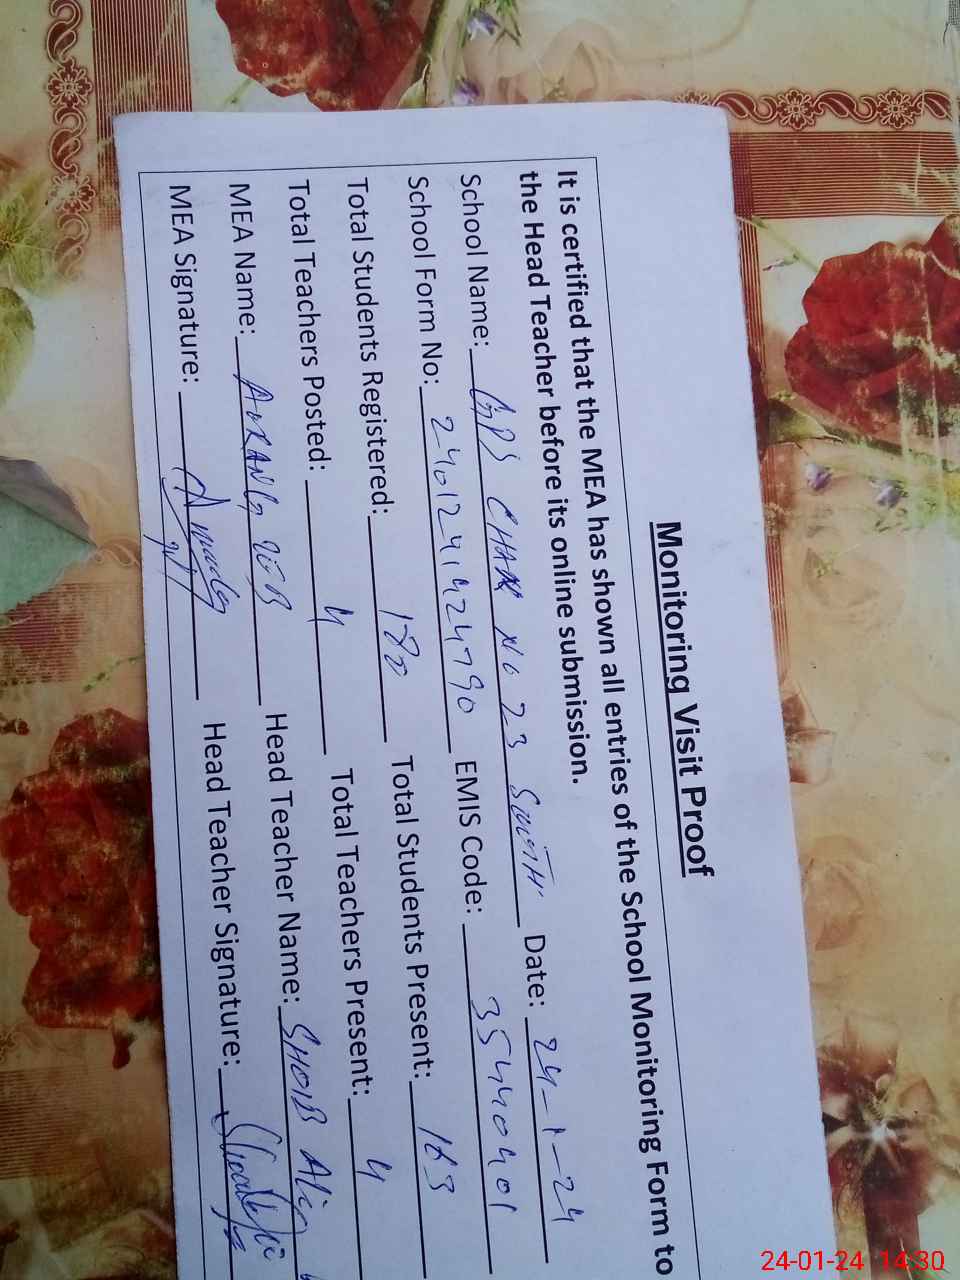 Monitoring Visit Proof
It is certified that the MEA has shown all entries of the School Monitoring Form to
the Head Teacher before its online submission.
School Name: GPS CHAK NO 23 SOUTH Date: 24-1-24
School Form No: 2401241424790 EMIS Code: 35440401
Total Students Registered: 180 Total Students Present: 163
Total Teachers Posted: 4 Total Teachers Present: 4
MEA Name: AURANGZEB Head Teacher Name: SHOIB Ali
MEA Signature: Head Teacher Signature:
24-01-24 14:30